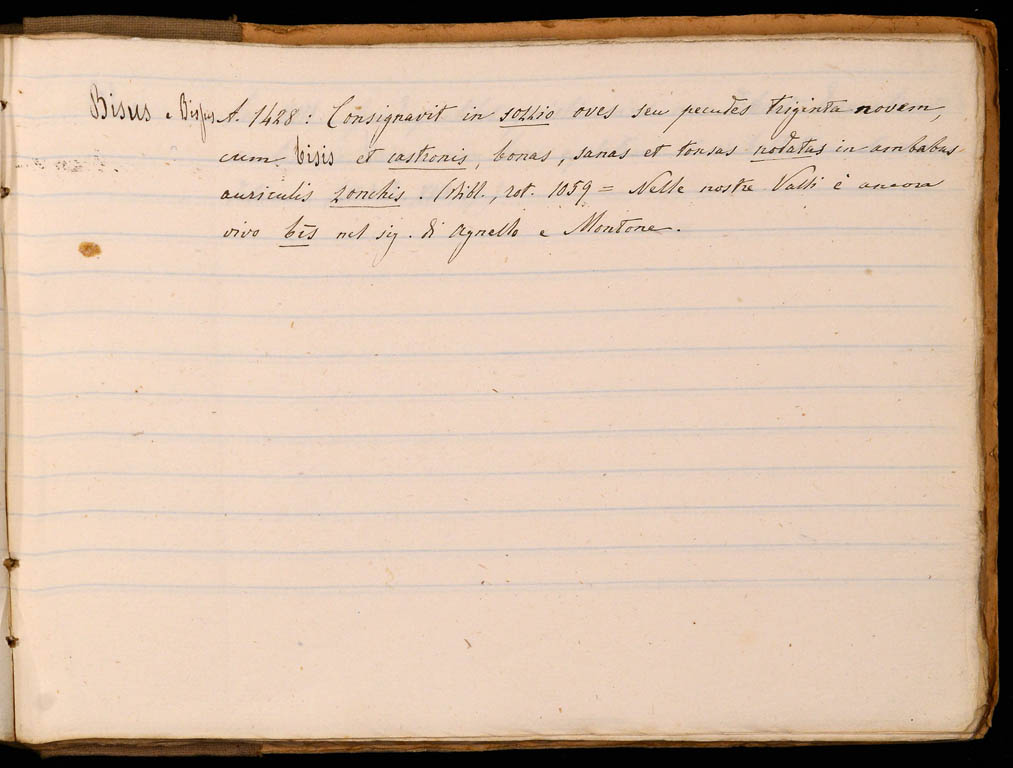 Bisus e Bisjus A. 1428: Consignavit in sozzio oves seu pecudes triginta novem,
cum bisis et castronis, bonas, sanas et tonsas nodatas in ambabus
auriculis zonchis. (Bibl., rot. 1059 = Nelle nostre Valli è ancora
vivo bīs nel sig. di Agnello e Montone.